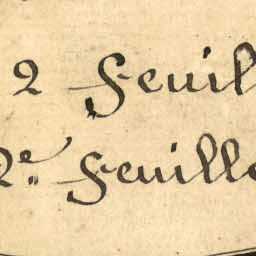 2 Feuil
2e. Feuille